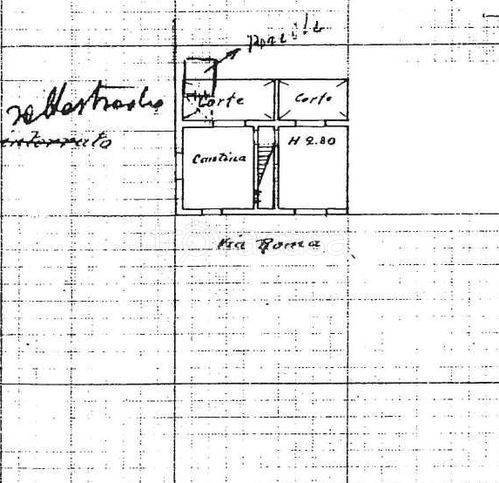 Corte
Corte
Cantina
H 2.80
interrato
Via Roma